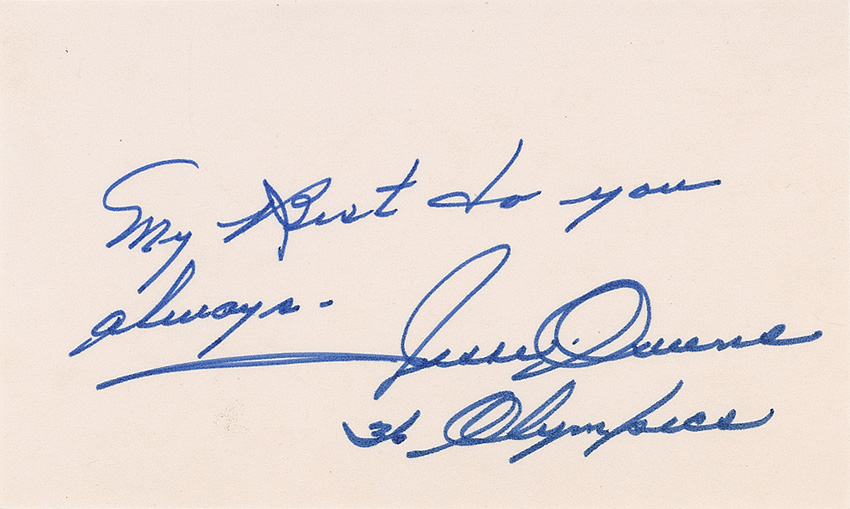 My Best to you
always -
Jesse Owens
36 Olympics